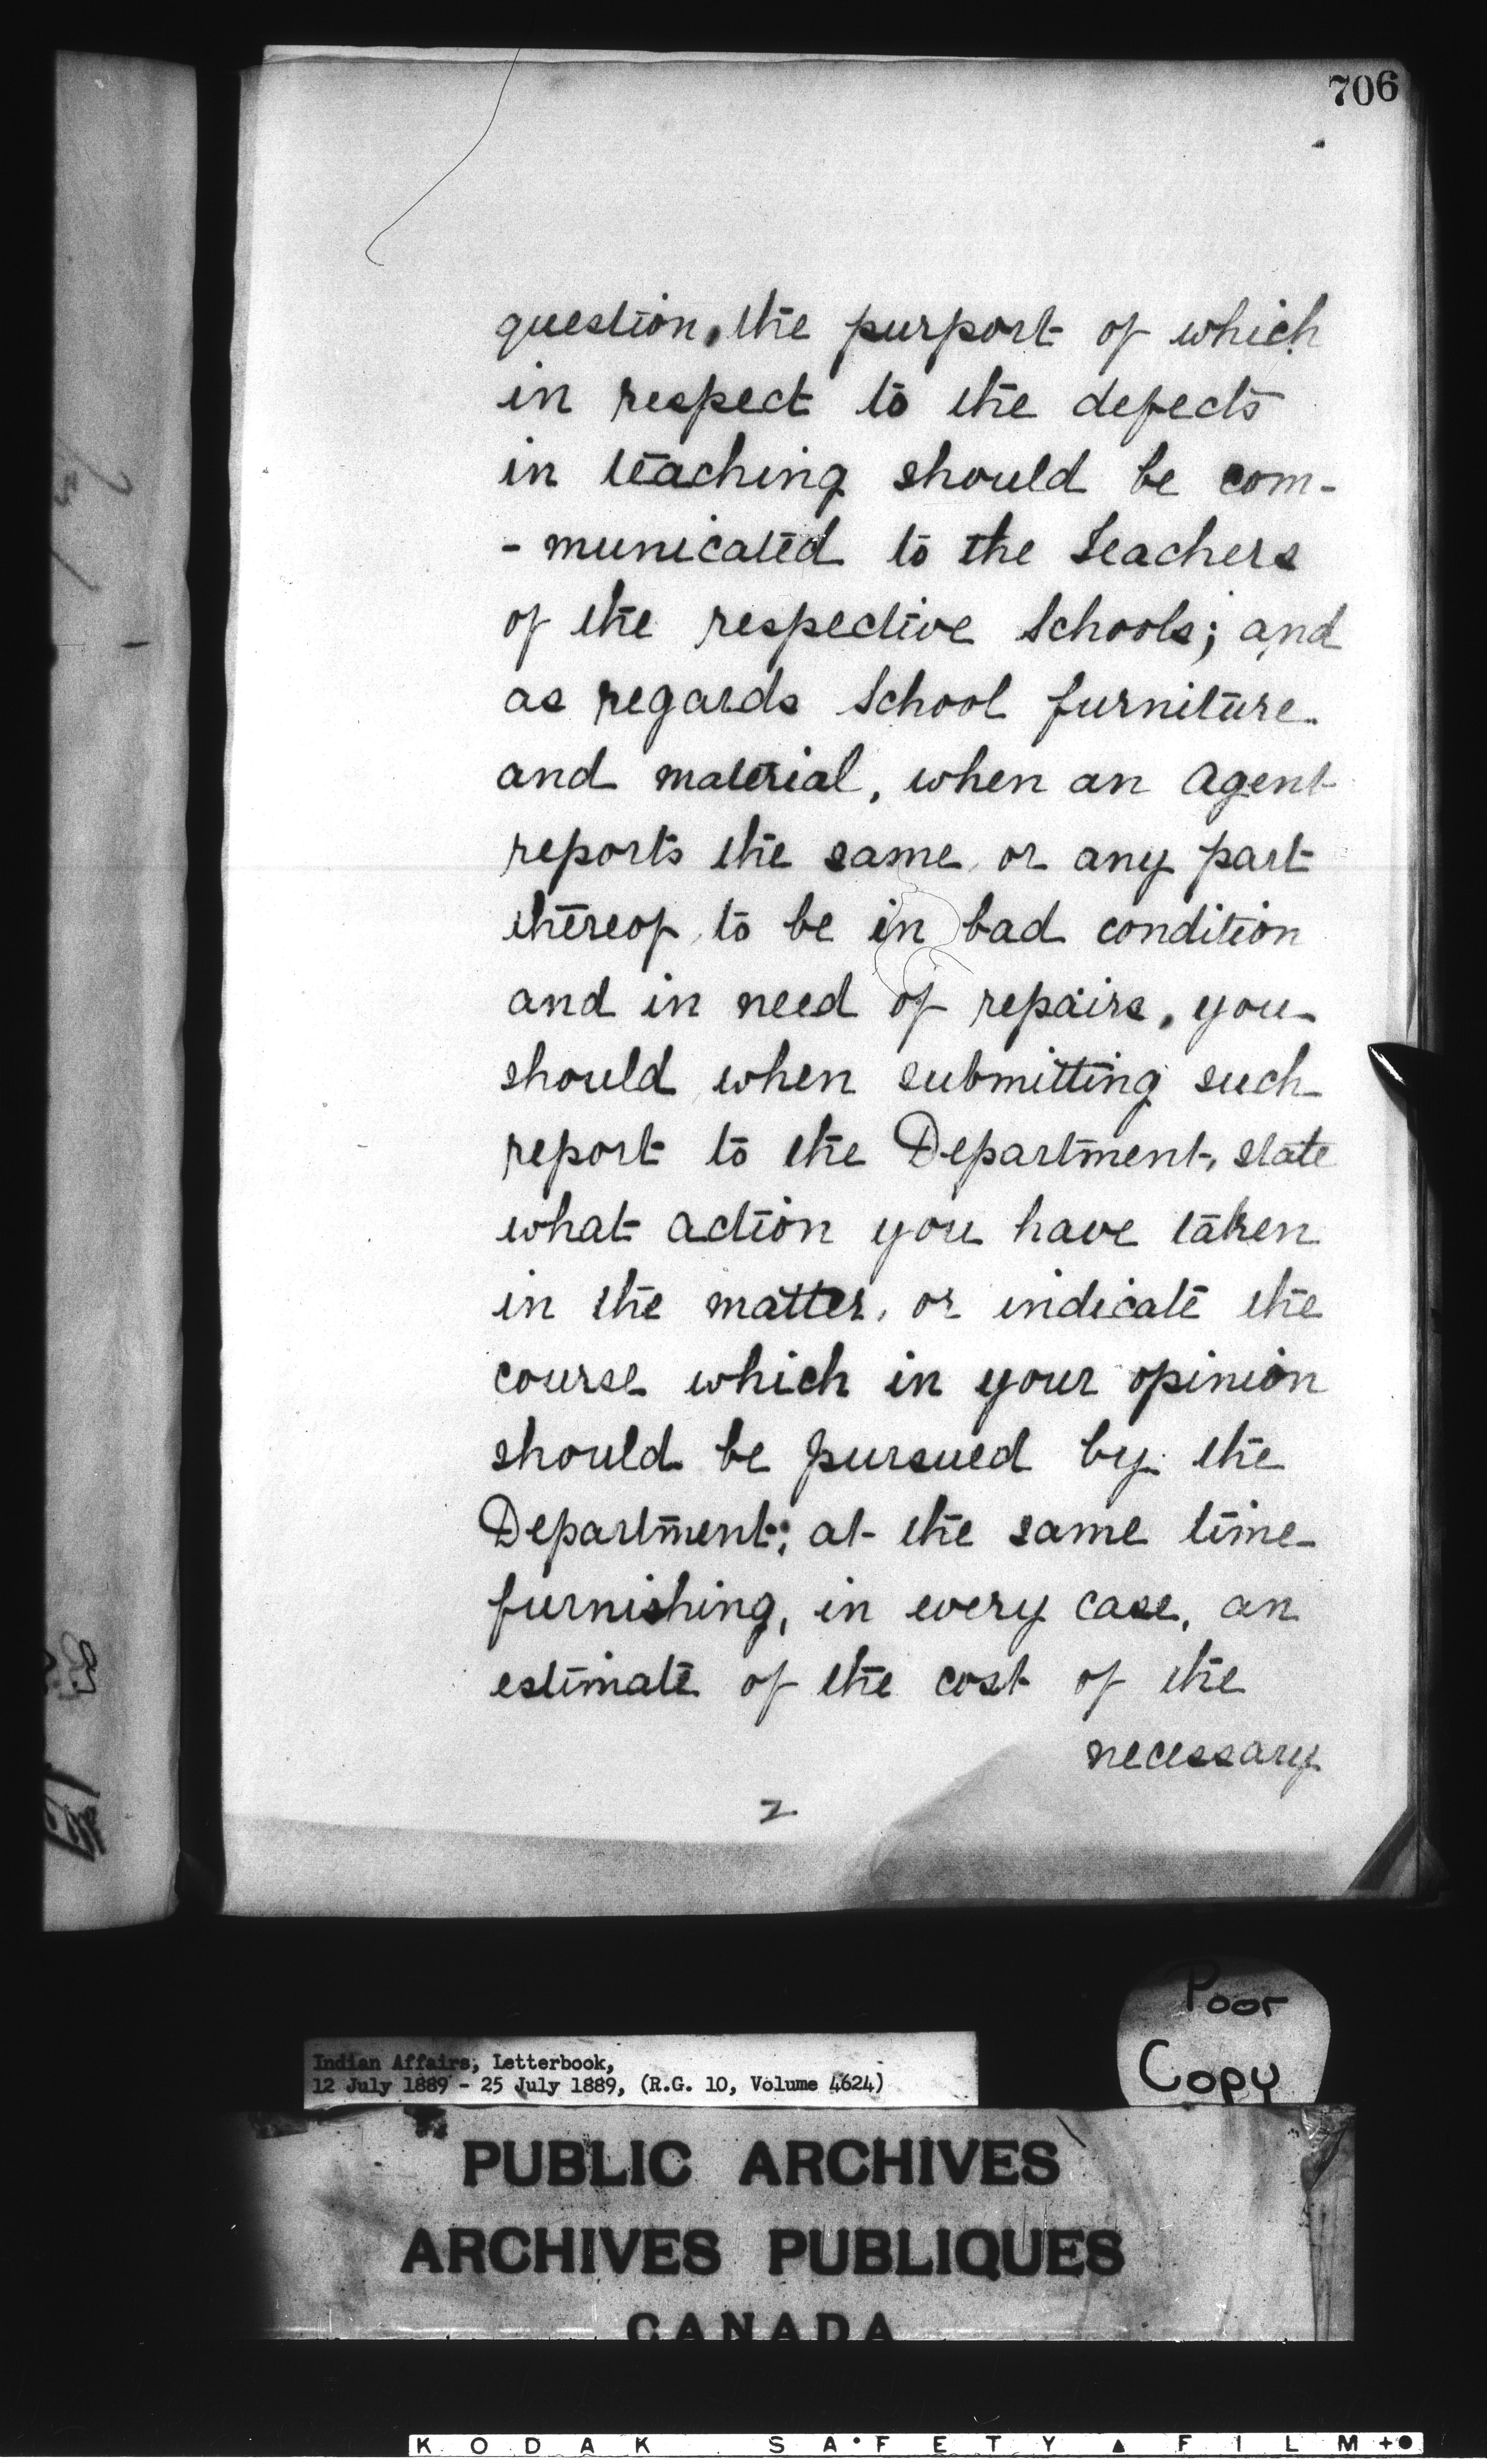 706
question, the purport of which
in respect to the defects
in teaching should be com-
- municated to the Teachers
of the respective Schools; and
as regards School furniture
and material, when an Agent
reports the same, or any part
thereof, to be in bad condition
and in need of repairs, you
should when submitting such
report to the Department, state
what action you have taken
in the matter, or indicate the
course which in your opinion
should be pursued by the
Department; at the same time
furnishing, in every case, an
estimate of the cost of the
necessary
2
Poor
Copy
Indian Affairs, Letterbook,
12 July 1889 - 25 July 1889, (R.G. 10, Volume 4624)
PUBLIC ARCHIVES
ARCHIVES PUBLIQUES
CANADA
KODAK SAFETY FILM